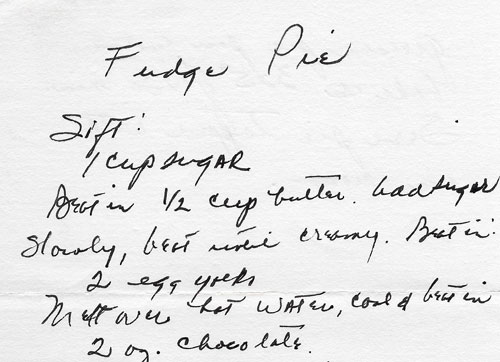 Fudge Pie
Sift:
1 cup sugar
Beat in 1/2 cup butter. Add sugar
slowly, beat until creamy. Beat in:
2 egg yolks
Melt over hot water, cool & beat in
2 oz. chocolate.